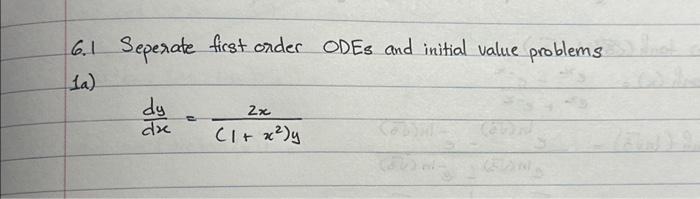 6.1 Seperate first order ODEs and initial value problems
1a)
dy/dx = 2x/((1 + x²)y)